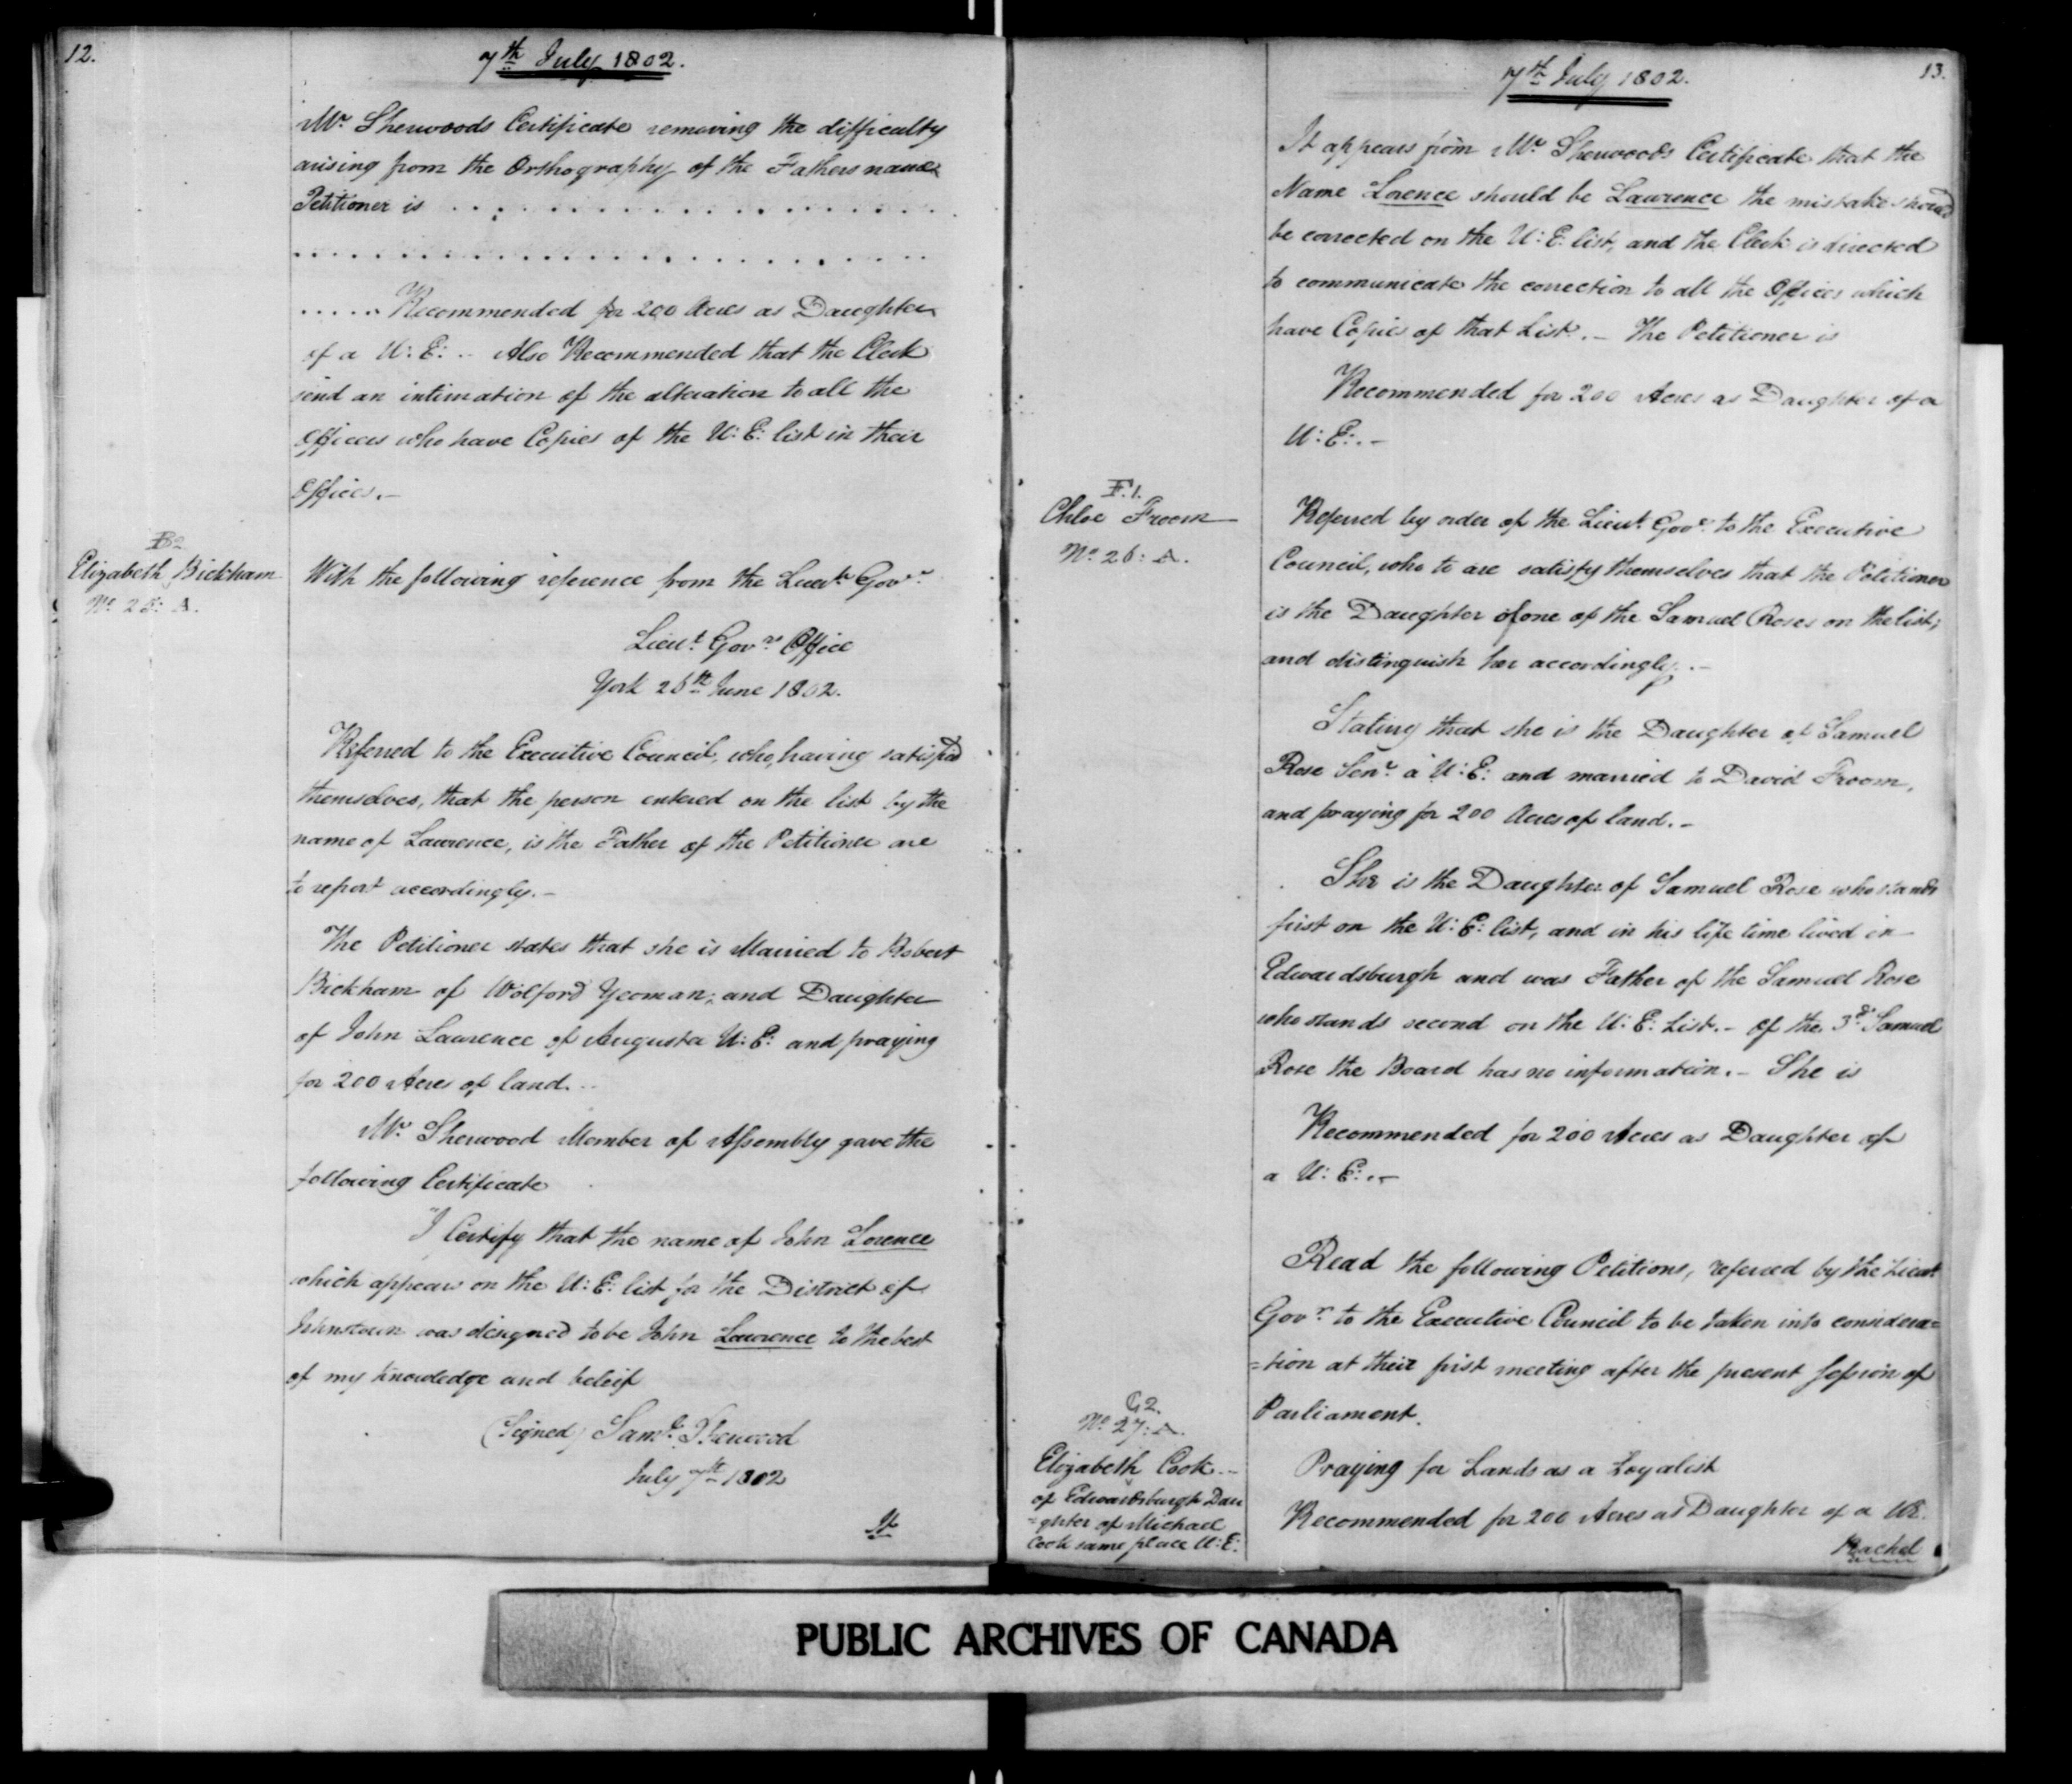 12.
7th July 1802.
Mr Sherwoods Certificate removing the difficulty
arising from the Orthography of the Fathers name
Petitioner is . . . . . . . . . . . . . . . . . . . .
. . . . . . . . . . . . . . . . . . . . . . . .
. . . . . Recommended for 200 Acres as Daughter
of a U: E: .. Also Recommended that the Clerk
send an intimation of the alteration to all the
Officers who have Copies of the U: E: list in their
Offices.—
B2
Elizabeth Bickham
No 25: A.
With the following reference from the Lieut Govr
Lieut Govrs Office
York 26th June 1802.
Referred to the Executive Council, who, having satisfied
themselves, that the person entered on the list by the
name of Lawrence, is the Father of the Petitioner are
to report accordingly.—
The Petitioner states that she is Married to Robert
Bickham of Wolford Yeoman; and Daughter
of John Lawrence of Augusta U: E: and praying
for 200 Acres of land. ..
Mr Sherwood Member of Assembly gave the
following Certificate
"I Certify that the name of John Lorence
which appears on the U: E: list for the District of
Johnstown was designed to be John Lawrence to the best
of my knowledge and beleif
(Signed) Saml Sherwood
July 7th 1802
It
13.
7th July 1802.
It appears from Mr Sherwoods Certificate that the
Name Lorence should be Lawrence the mistake should
be corrected on the U: E: list, and the Clerk is directed
to communicate the correction to all the Offices which
have Copies of that List. — The Petitioner is
Recommended for 200 Acres as Daughter of a
U: E:. —
F.1.
Chloe Froom
No 26: A.
Referred by order of the Lieut Govr to the Executive
Council, who to are satisfy themselves that the Petitioner
is the Daughter of one of the Samuel Roses on the list;
and distinguish her accordingly. —
Stating that she is the Daughter of Samuel
Rose Senr a U: E: and married to David Froom,
and praying for 200 Acres of land. —
She is the Daughter of Samuel Rose who stands
first on the U: E: list, and in his life time lived in
Edwardsburgh and was Father of the Samuel Rose
who stands second on the U: E: List. — Of the 3d Samuel
Rose the Board has no information. — She is
Recommended for 200 Acres as Daughter of
a U: E:. —
Read the following Petitions, referred by the Lieut
Govr to the Executive Council to be taken into considera=
=tion at their first meeting after the present Session of
Parliament.
G2.
No 27: A.
Elizabeth Cook —
of Edwardsburgh Dau
=ghter of Michael
Cook same place U: E:
Praying for Lands as a Loyalist
Recommended for 200 Acres as Daughter of a UE.
Rachel
PUBLIC ARCHIVES OF CANADA